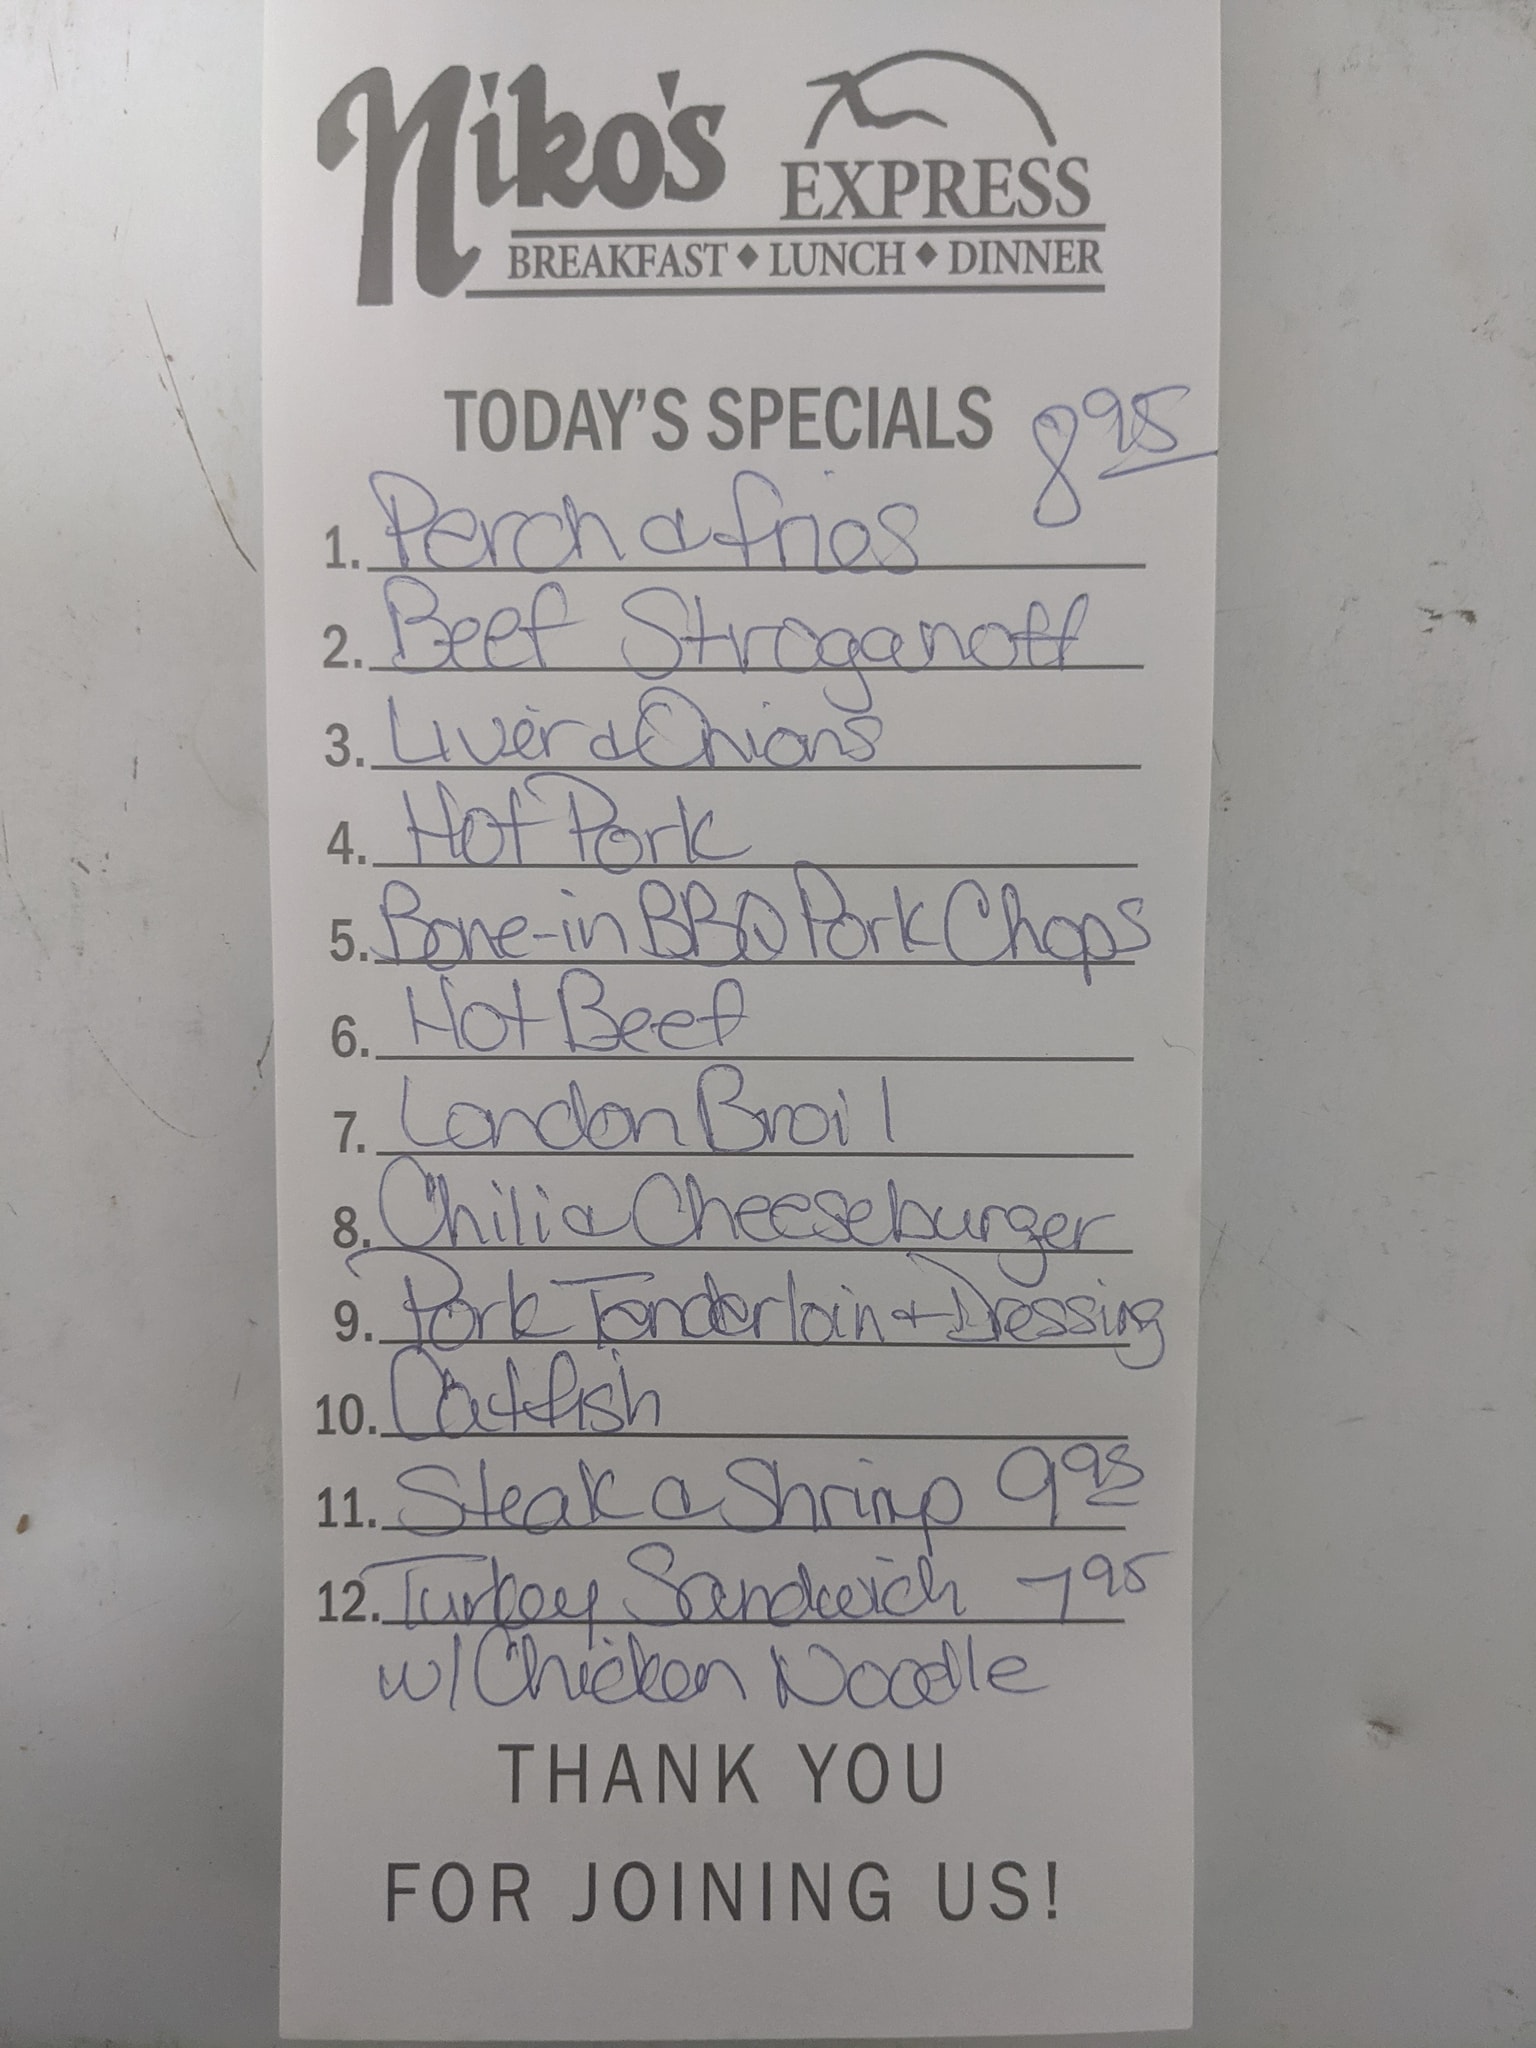 Niko's EXPRESS
BREAKFAST ◆ LUNCH ◆ DINNER
TODAY'S SPECIALS 8 95
1. Perch & fries
2. Beef Stroganoff
3. Liver & Onions
4. Hot Pork
5. Bone-in BBQ Pork Chops
6. Hot Beef
7. London Broil
8. Chili & Cheeseburger
9. Pork Tenderloin + Dressing
10. Catfish
11. Steak & Shrimp 9 95
12. Turkey Sandwich 7 95
w/ Chicken Noodle
THANK YOU
FOR JOINING US!